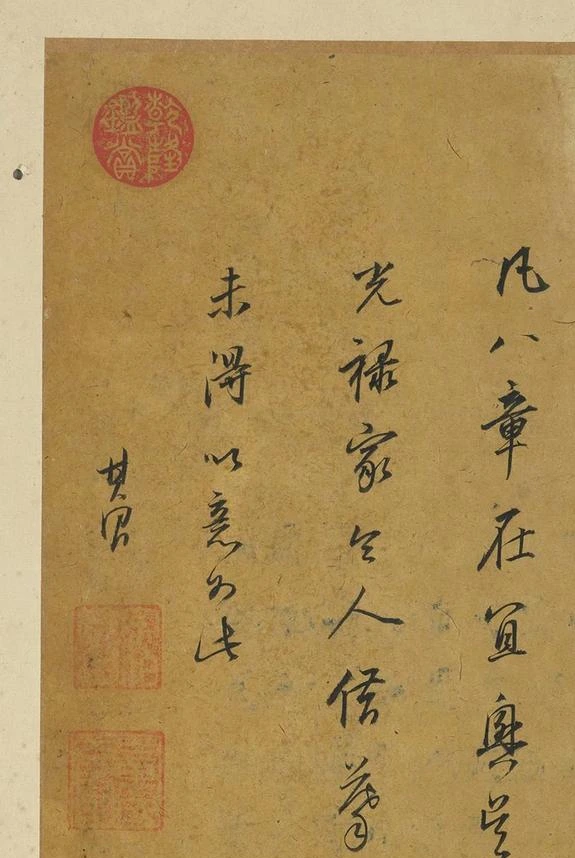 凡八章在宜興吳
光祿家令人借摹
未得以意為此
其昌
乾隆鑑賞